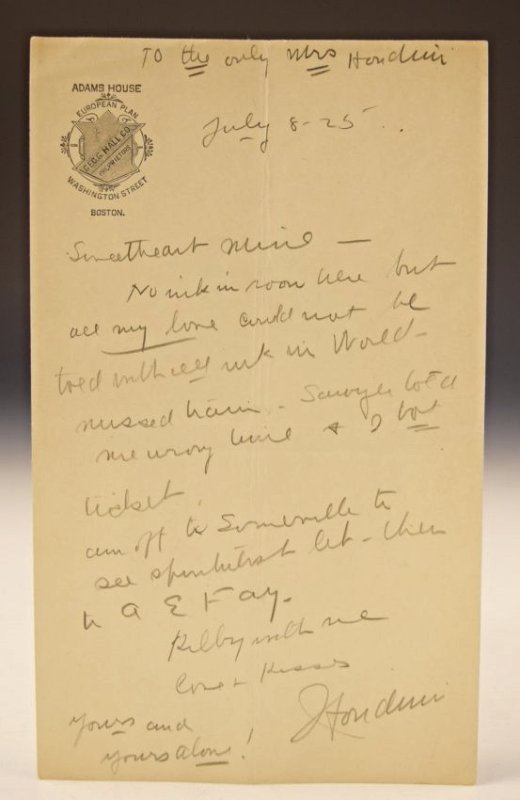 TO the only Mrs Houdini
ADAMS HOUSE
EUROPEAN PLAN
GEO. G. HALL CO.
PROPRIETORS
WASHINGTON STREET
BOSTON.
July 8-25
Sweetheart Mine —
No ink in room here but
all my love could not be
told with all ink in World-
missed train - Sawyer told
me wrong time & I lost
ticket.
am off to Somerville to
see spiritualist - then
to A E Fay-
Kilby with me
Love & Kisses
Houdini
yours and
yours alone!